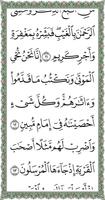 ٱلرَّحْمَٰنَ بِٱلْغَيْبِ فَبَشِّرْهُ بِمَغْفِرَةٍ
وَأَجْرٍ كَرِيمٍ ١١ إِنَّا نَحْنُ نُحْىِ
ٱلْمَوْتَىٰ وَنَكْتُبُ مَا قَدَّمُوا۟
وَءَاثَٰرَهُمْ وَكُلَّ شَىْءٍ
أَحْصَيْنَٰهُ فِىٓ إِمَامٍ مُّبِينٍ ١٢
وَٱضْرِبْ لَهُم مَّثَلًا أَصْحَٰبَ
ٱلْقَرْيَةِ إِذْ جَآءَهَا ٱلْمُرْسَلُونَ ١٣